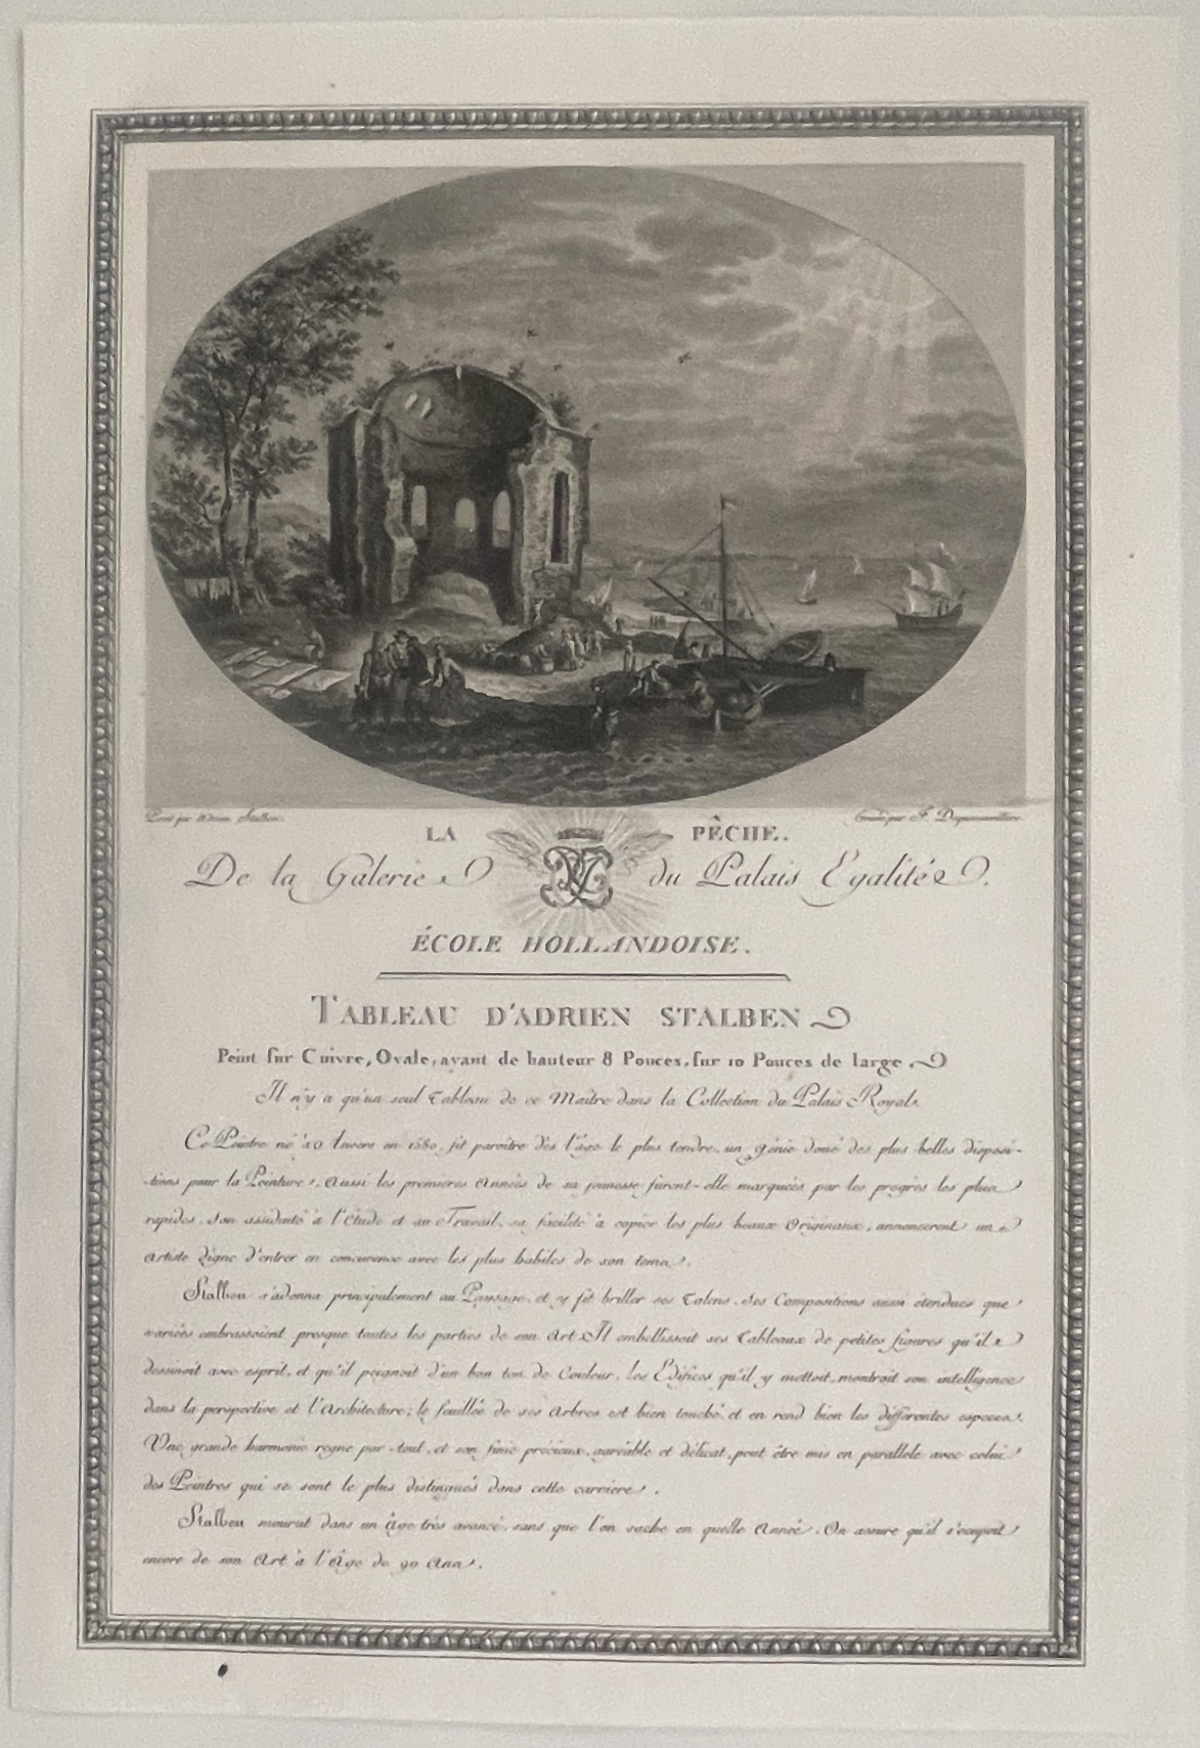 Peint par Adrien Stalben.
Gravé par F. Dequevauviller.
LA PÊCHE.
De la Galerie du Palais Egalité.
ÉCOLE HOLLANDOISE.
TABLEAU D'ADRIEN STALBEN
Peint sur Cuivre, Ovale, ayant de hauteur 8 Pouces, sur 10 Pouces de large.
Il n'y a qu'un seul Tableau de ce Maître dans la Collection du Palais Royal.
Ce Peintre né à Anvers en 1580, fit paroître dès l'âge le plus tendre, un génie doué des plus belles disposi-
-tions pour la Peinture, aussi les premières Années de sa jeunesse furent-elle marquées par les progrès les plus
rapides. Son assiduité à l'étude et au Travail, sa facilité à copier les plus beaux Originaux, annoncerent un
Artiste digne d'entrer en concurence avec les plus habiles de son tems.
Stalben s'adonna principalement au Paysage, et y fit briller ses Talens. Ses Compositions aussi étendues que
variées embrassoient presque toutes les parties de son Art. Il embellissoit ses Tableaux de petites figures qu'il
dessinoit avec esprit, et qu'il peignoit d'un bon ton de Couleur. les Edifices qu'il y mettoit, montroit son intelligence
dans la perspective et l'Architecture; le feuillée de ses Arbres est bien touché, et en rend bien les différentes especes.
Une grande harmonie regne par-tout, et son finie précieux, agréable et délicat, peut être mis en parallele avec celui
des Peintres qui se sont le plus distingués dans cette carriere.
Stalben mourut dans un âge très avancé, sans que l'on sache en quelle Année. On assure qu'il s'occupoit
encore de son Art à l'Âge de 90 Ans.